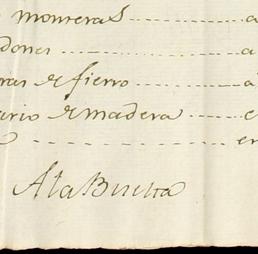 monteras ........ a
dones ........ a
ras de fierro ........ a
ario de madera ........ e
........ en
A la Buelta